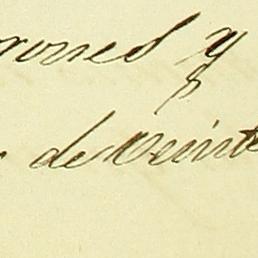 rones y
de Veinte